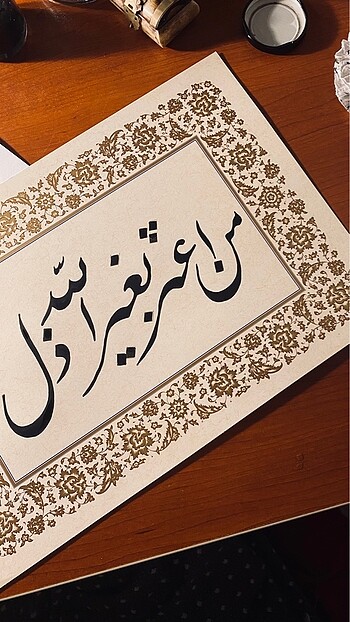 من اعتز بغير الله ذل